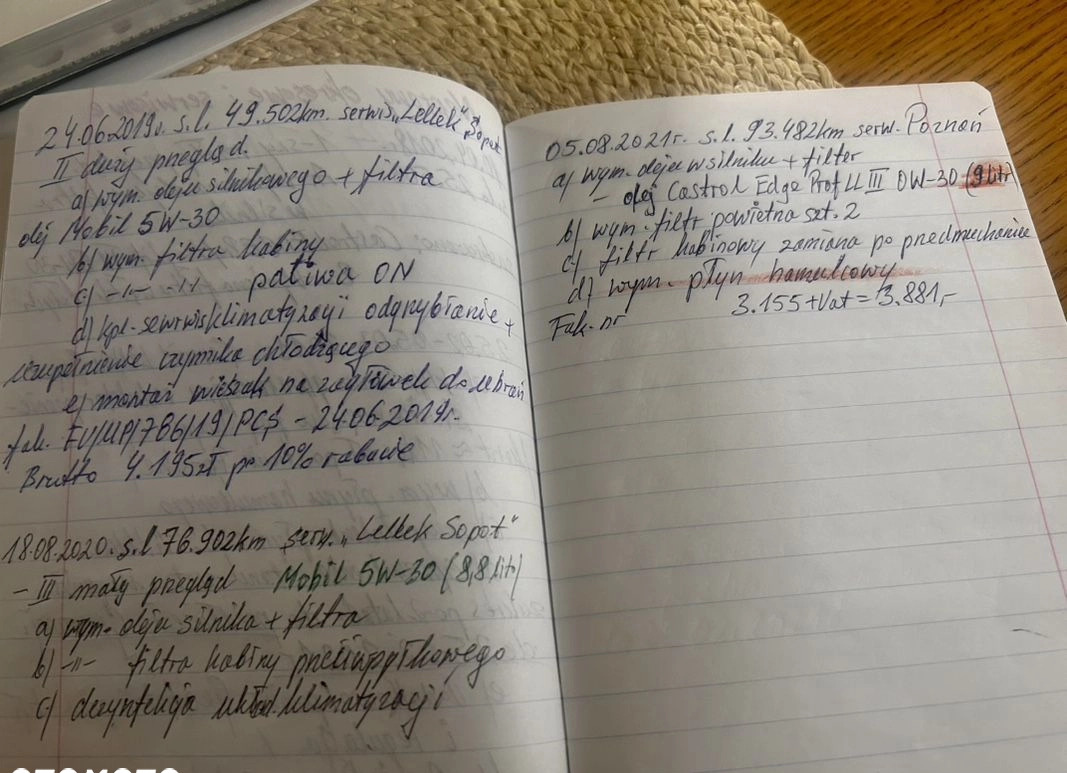 24.06.2019r. s.l. 49.502km. serwis „Lellek" Sopot
II duży przegląd.
a) wym. oleju silnikowego + filtra
olej Mobil 5W-30
b) wym. filtra kabiny
c) -"- -"- paliwa ON
d) kpl. serwis klimatyzacji odgrzybianie +
uzupełnienie czynnika chłodzącego
e) montaż wieszak na zagłówek do ubrań
fak. FV/UP/786/19/PCS - 24.06.2019r.
Brutto 4.195zł po 10% rabacie
18.08.2020. s.l 76.902km serw. „Lellek Sopot"
- III mały przegląd Mobil 5W-30 (8,8 litr)
a) wym. oleju silnika + filtra
b) -"- filtra kabiny przeciwpyłkowego
c) dezynfekcja układ. klimatyzacji
05.08.2021r. s.l. 93.482km serw. Poznań
a) wym. oleju w silniku + filter
- olej Castrol Edge Prof LL III 0W-30 (9 litr)
b) wym. filtr powietrza szt. 2
c) filtr kabinowy zamiana po przedmuchanie
d) wym. płyn hamulcowy
3.155 + Vat = 3.881,-
Fak. nr